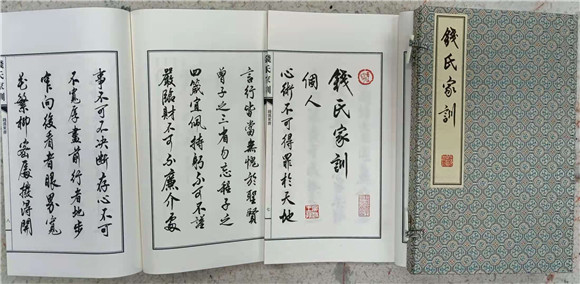 錢氏家訓
錢氏家訓
個人
心術不可得罪於天地
言行皆當無愧於聖賢
曾子之三省勿忘程子之
四箴宜佩持躬不可不謹
嚴臨財不可不廉介處
錢氏家訓
事不可不決斷存心不可
不寬厚盡前行者地步
窄向後看者眼界寬
花繁柳密處撥得開
錢氏家訓